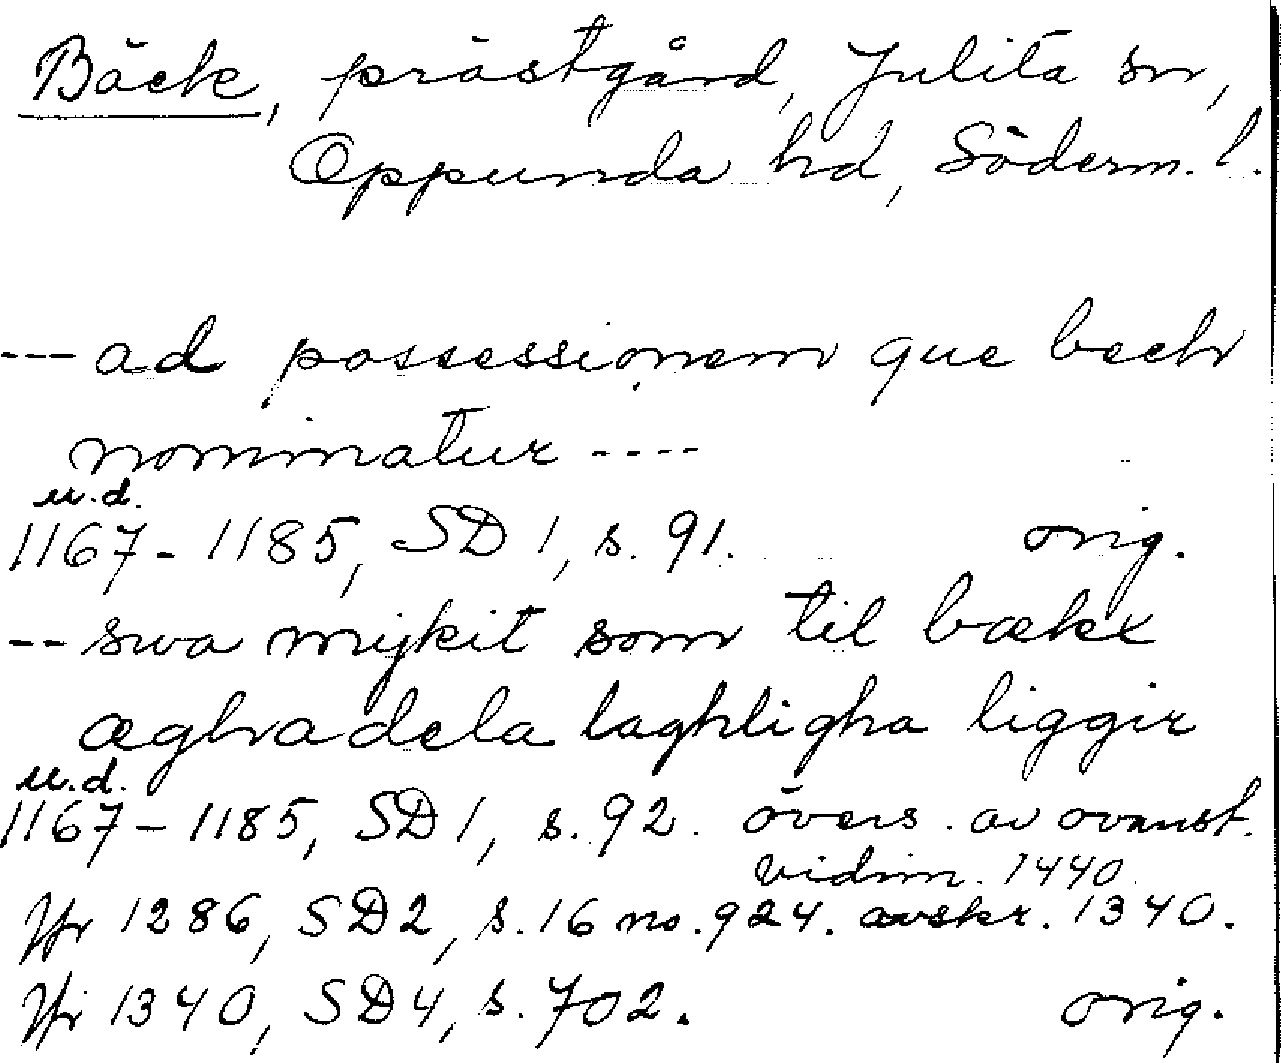 Bäck, prästgård, Julita sn,
Oppunda hd, Söderm. l.
--- ad possessionem que bech
nominatur ----
u.d.
1167 - 1185, SD 1, s. 91. orig.
-- swa mykit som til bække
æghadela laghligha liggir
u.d.
1167 - 1185, SD 1, s. 92. övers. av ovanst.
vidim. 1440.
Jfr 1286, SD 2, s. 16 no. 924. avskr. 1340.
Jfr 1340, SD 4, s. 702. orig.